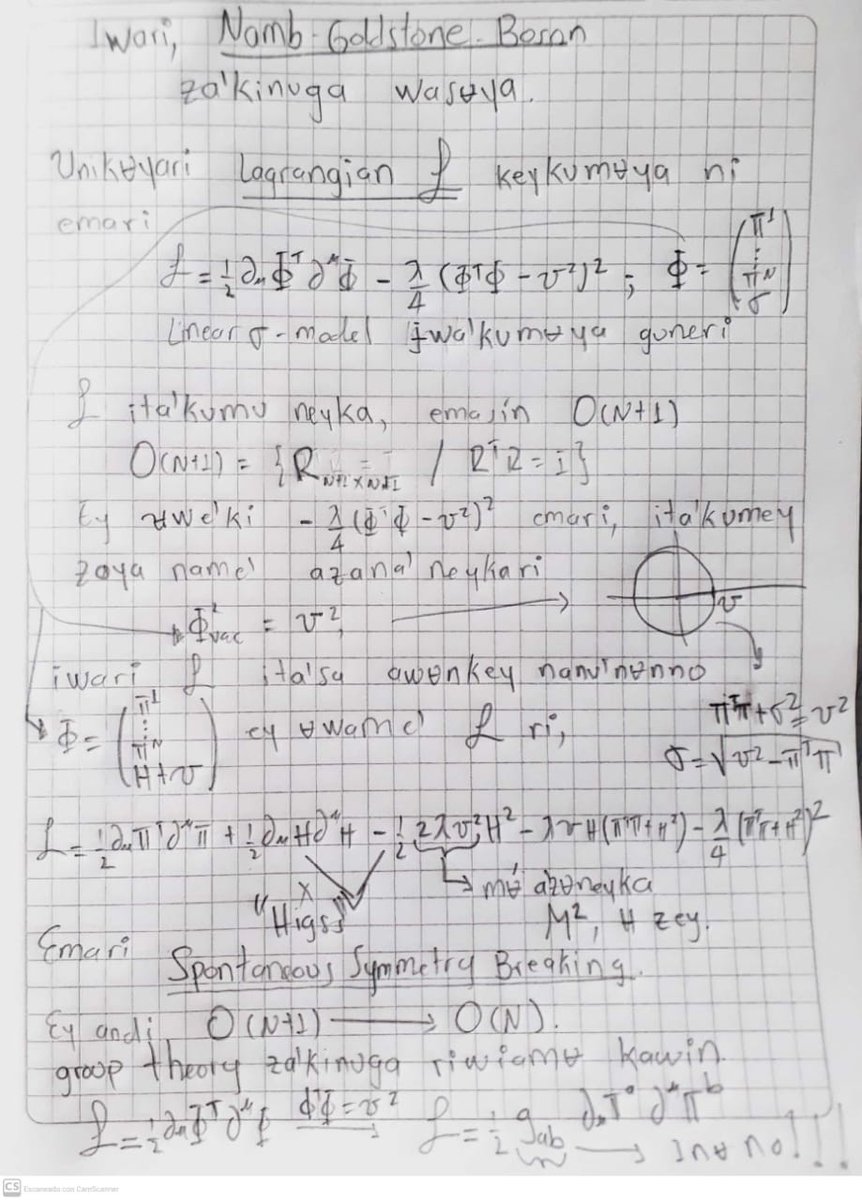 Iwari, Namb-Goldstone-Boson
za'kinuga wasʉya.
Unikʉyari Lagrangian ℒ keykumʉya ni
emari
ℒ = 1/2 ∂μΦᵀ∂^μΦ - λ/4 (ΦᵀΦ - v²)² ; Φ = (π¹ ⋮ πᴺ σ)
Linear σ-model ɨwa'kumʉya guneri
ℒ ita'kumu neyka, emasin O(N+1)
O(N+1) = {R N+1×N+1 / RᵀR = I}
Ey ʉwe'ki - λ/4 (ΦᵀΦ - v²)² emari, ita'kumey
zoya name' azana' neykari
v
Φ²vac = v²,
iwari ℒ ita'su awʉnkey nanu'nʉnno
Φ = (π¹ ⋮ πᴺ H+v) ey ʉwame' ℒ ri,
πᵀπ + σ² = v²
σ = √(v² - πᵀπ)
ℒ = 1/2 ∂μπᵀ∂^μπ + 1/2 ∂μH∂^μH - 1/2 2λv²H² - λvH(πᵀπ + H²) - λ/4 (πᵀπ + H²)²
"Higss" mʉ' azʉneyka
M², H zey.
Emari
Spontaneous Symmetry Breaking.
Ey andi O(N+1) → O(N).
group theory za'kinuga riwiamʉ kawin.
ℒ = 1/2 ∂μΦᵀ∂^μΦ ΦᵀΦ = v² → ℒ = 1/2 gab ∂μπᵃ∂^μπᵇ
CS Escaneado con CamScanner